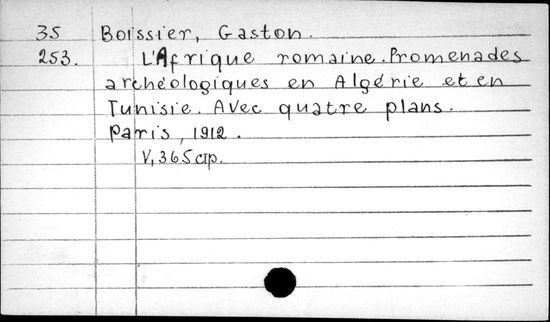 35 Boissier, Gaston.
253. L'Afrique romaine. Promenades
archéologiques en Algérie et en
Tunisie. Avec quatre plans.
Paris, 1912.
V, 365 стр.